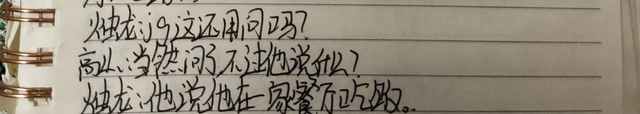 烛龙:jg这还用问吗?
高:当然问了,不过他说什么?
烛龙:他说他在一家餐厅吃饭。